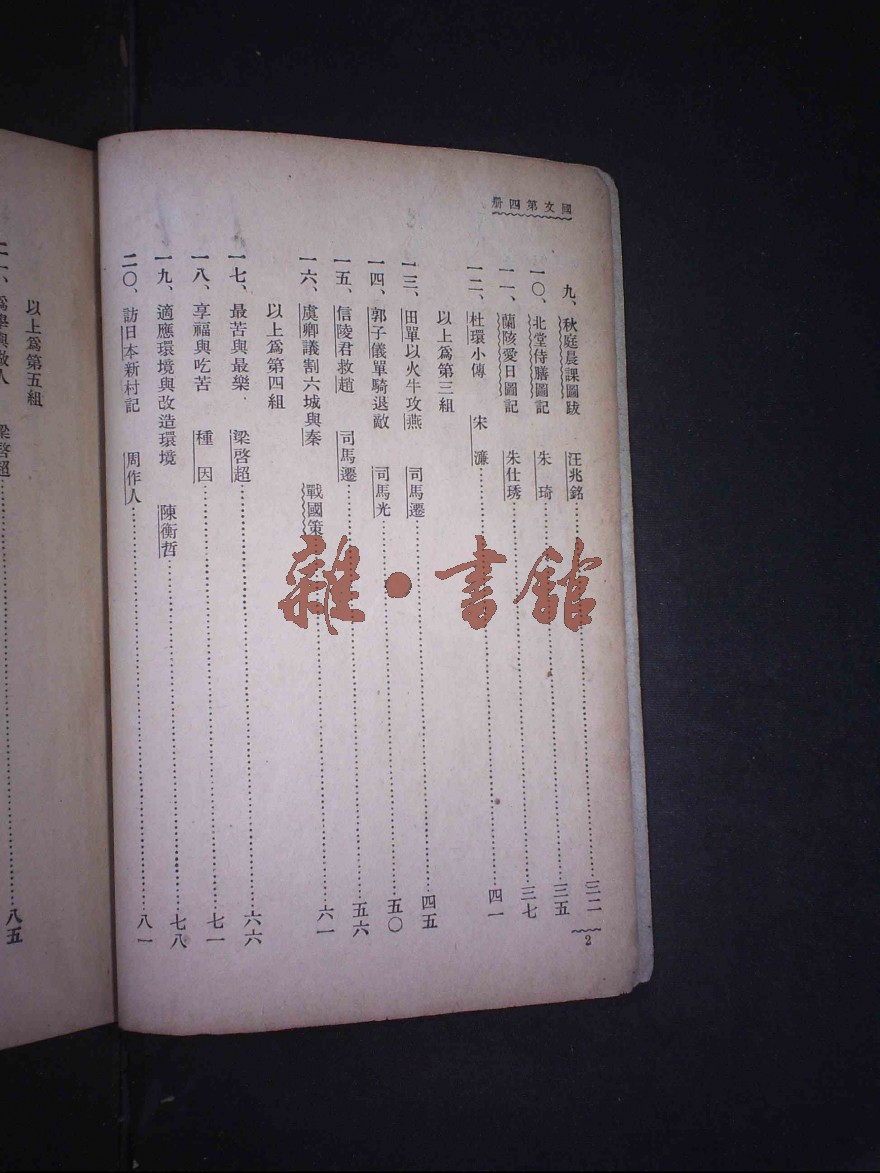 國文第四册
九、秋庭晨課圖跋 汪兆銘 三二
一〇、北堂侍膳圖記 朱琦 三五
一一、蘭陔愛日圖記 朱仕琇 三七
一二、杜環小傳 宋濂 四一
以上爲第三組
一三、田單以火牛攻燕 司馬遷 四五
一四、郭子儀單騎退敵 司馬光 五〇
一五、信陵君救趙 司馬遷 五六
一六、虞卿議割六城與秦 戰國策 六一
以上爲第四組
一七、最苦與最樂 梁啓超 六六
一八、享福與吃苦 種因 七一
一九、適應環境與改造環境 陳衡哲 七八
二〇、訪日本新村記 周作人 八一
2
以上爲第五組
二一、爲學與做人 梁啓超 八五
雜·書館